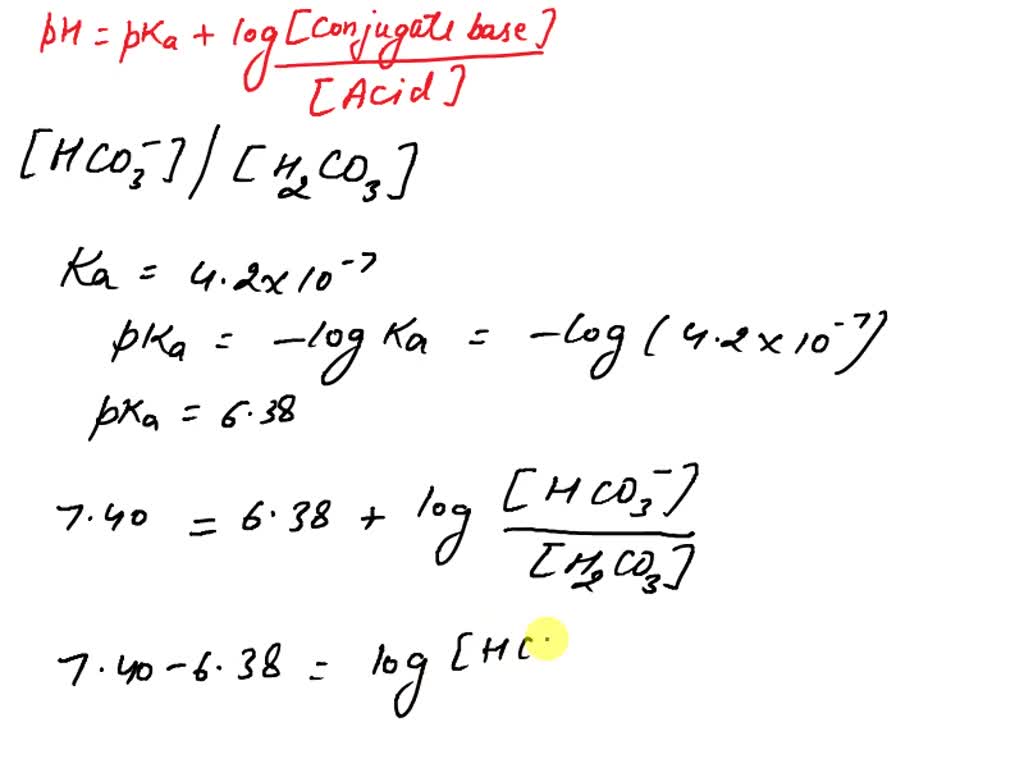 pH = pKa + log [Conjugate base]
[Acid]
[HCO₃⁻] / [H₂CO₃]
Ka = 4.2x10⁻⁷
pKa = -log Ka = -log (4.2x10⁻⁷)
pKa = 6.38
7.40 = 6.38 + log [HCO₃⁻]
[H₂CO₃]
7.40-6.38 = log [HC